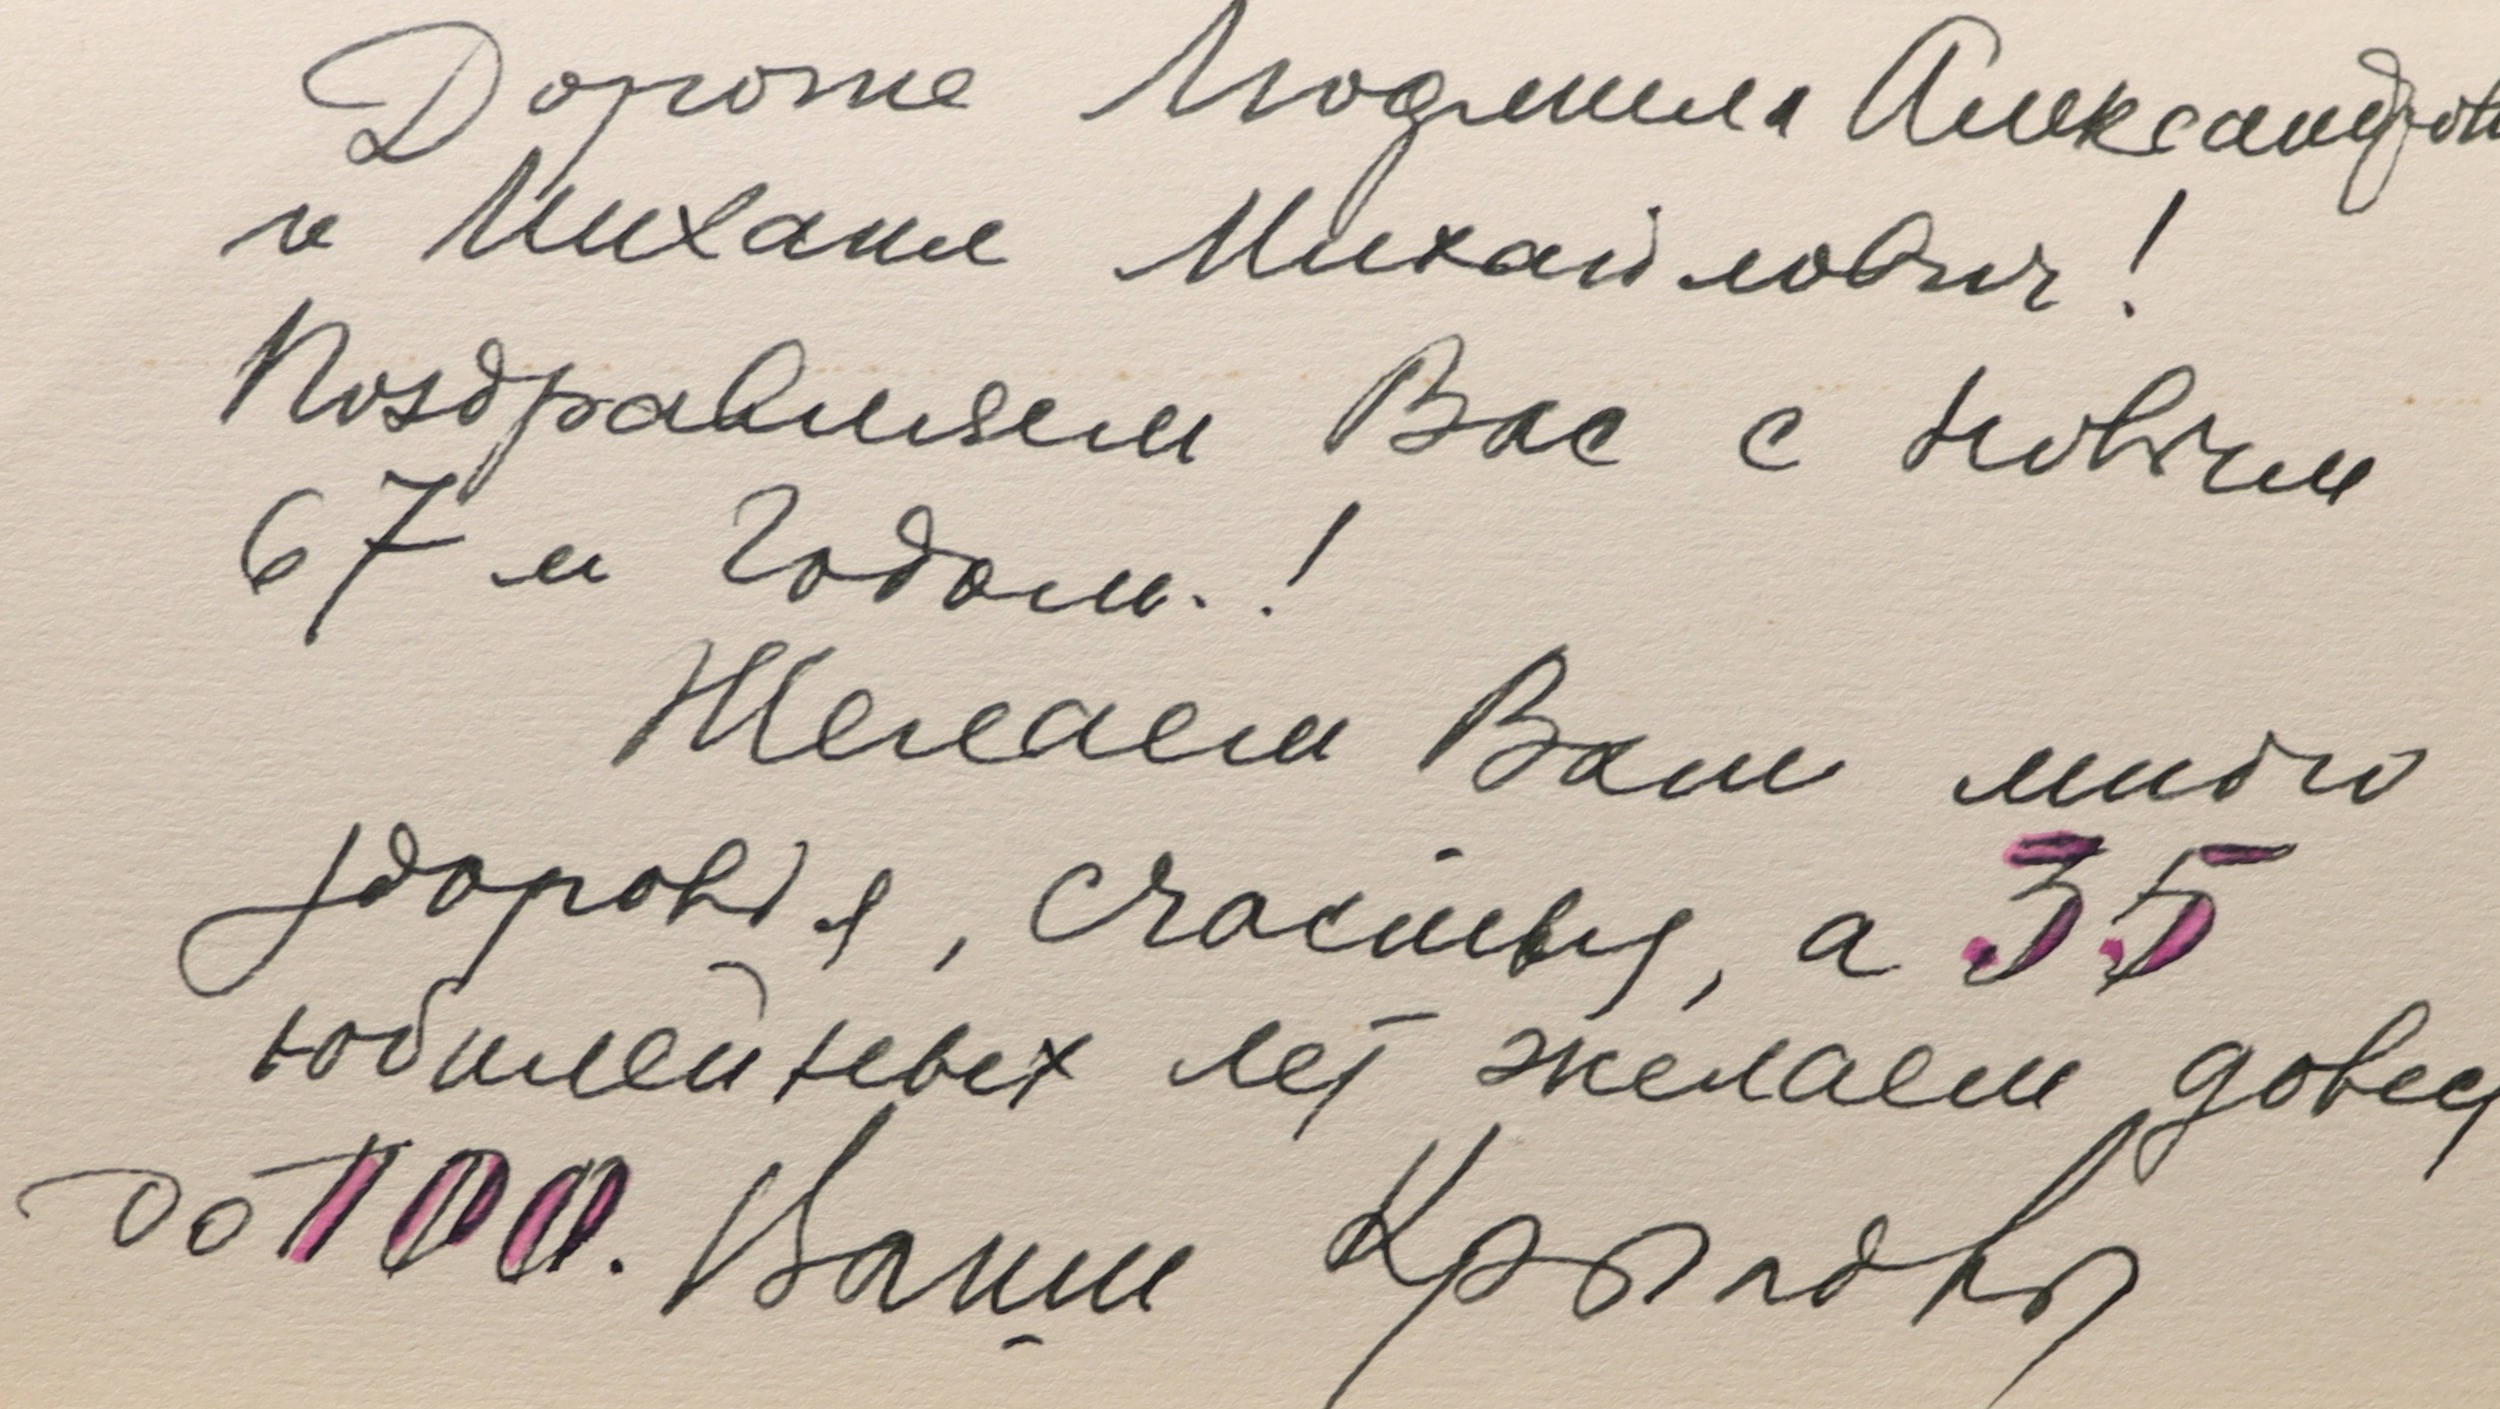 Дорогие Людмила Александровн
и Михаил Михайлович!
Поздравляем Вас с новым
67 м годом.!
Желаем Вам много
здоровья, счастья, а 35
юбилейных лет желаем довес
до 100. Ваши Крыловы